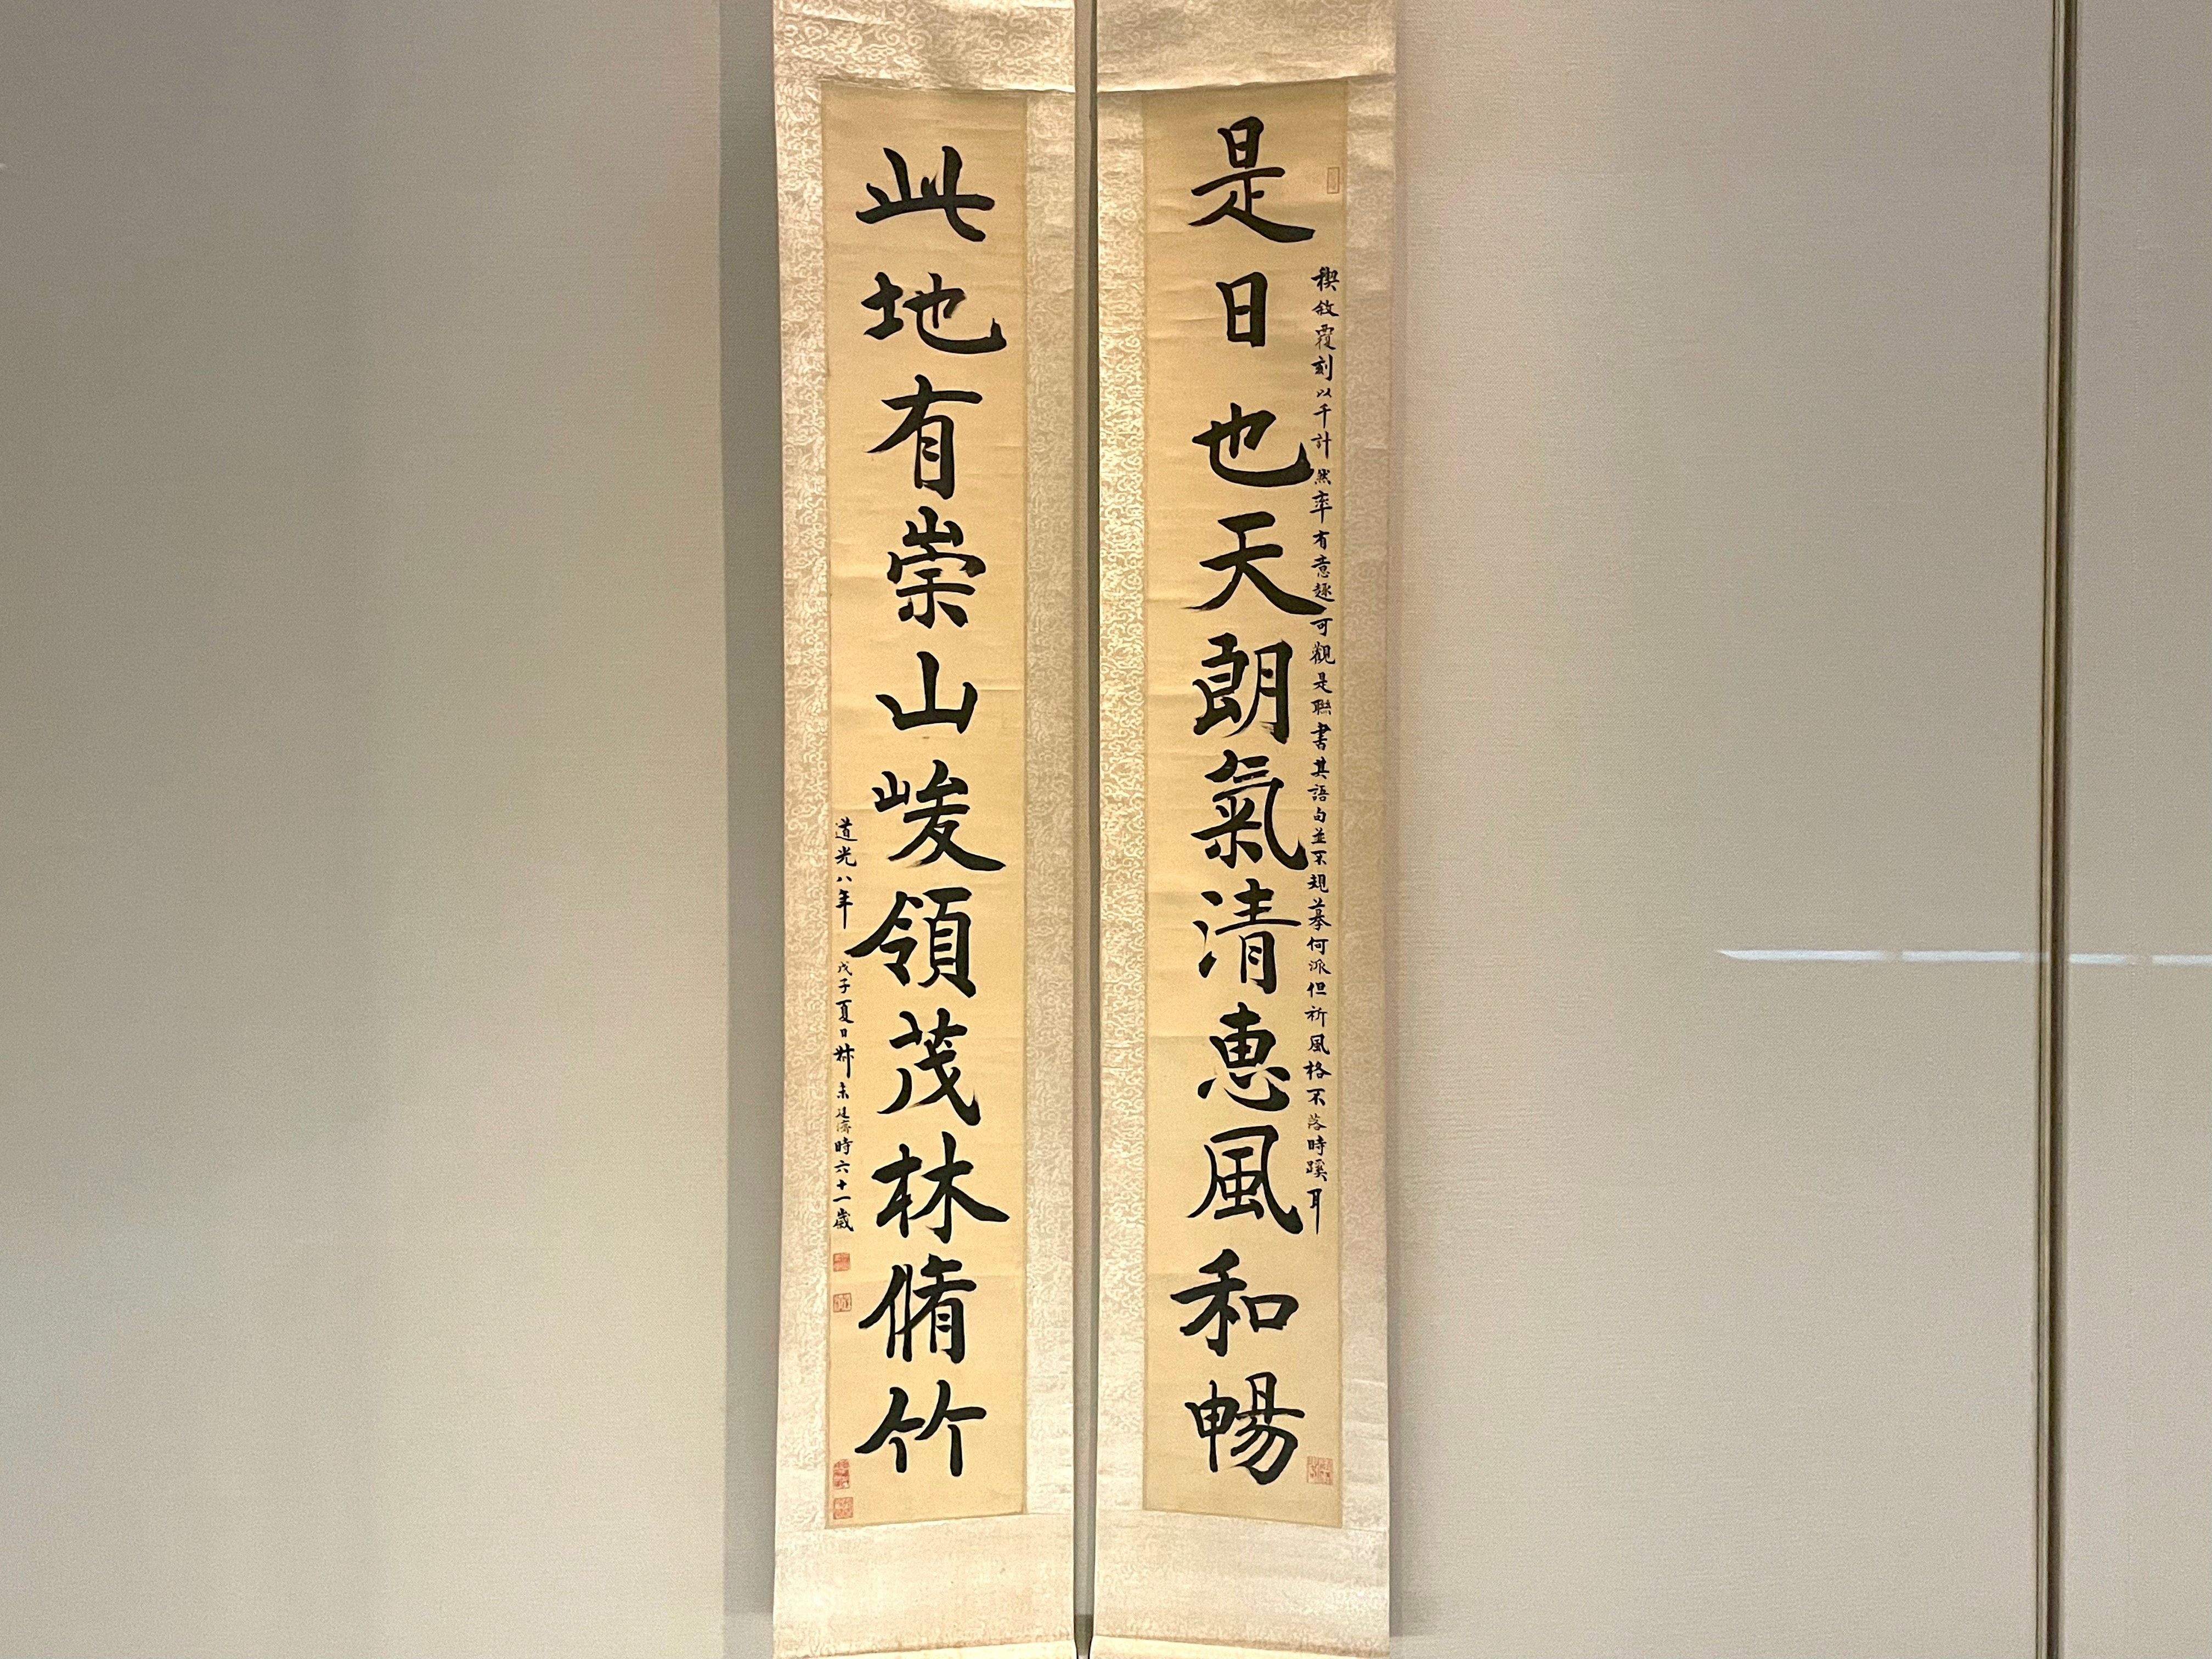 是日也天朗氣清惠風和暢
禊敘覆刻以千計然率有意趣可觀是聯書其語句並不規摹何派但祈風格不落時蹊耳
此地有崇山峻領茂林脩竹
道光八年戊子夏日叔未廷濟時六十一歲